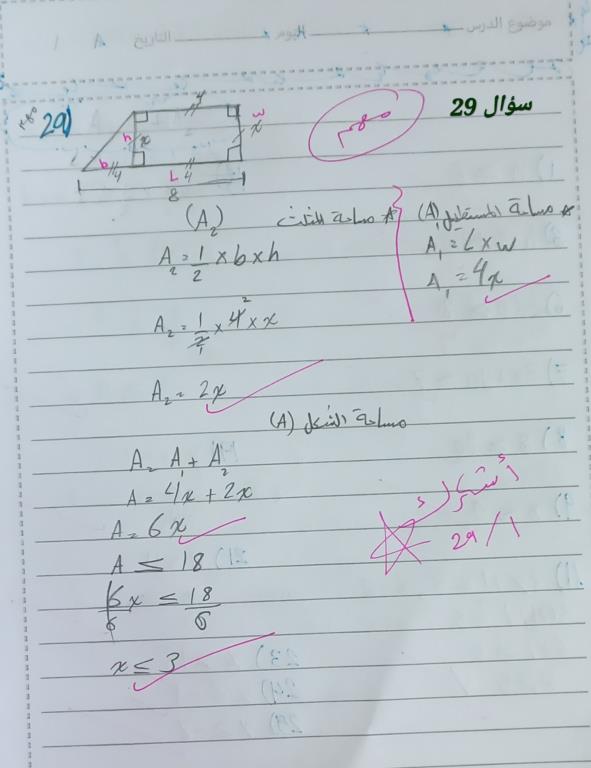 موضوع الدرس اليوم التاريخ / ٨
سؤال 29
مهم
29)
4
h x
w x
b 4
L 4
8
* مساحة المستطيل (A₁)
A₁ = L x w
A₁ = 4x
* مساحة المثلث (A₂)
A₂ = 1/2 x b x h
A₂ = 1/2 x 4 x x
A₂ = 2x
مساحة الشكل (A)
A = A₁ + A₂
A = 4x + 2x
A = 6x
A ≤ 18
6x/6 ≤ 18/6
x ≤ 3
29/1